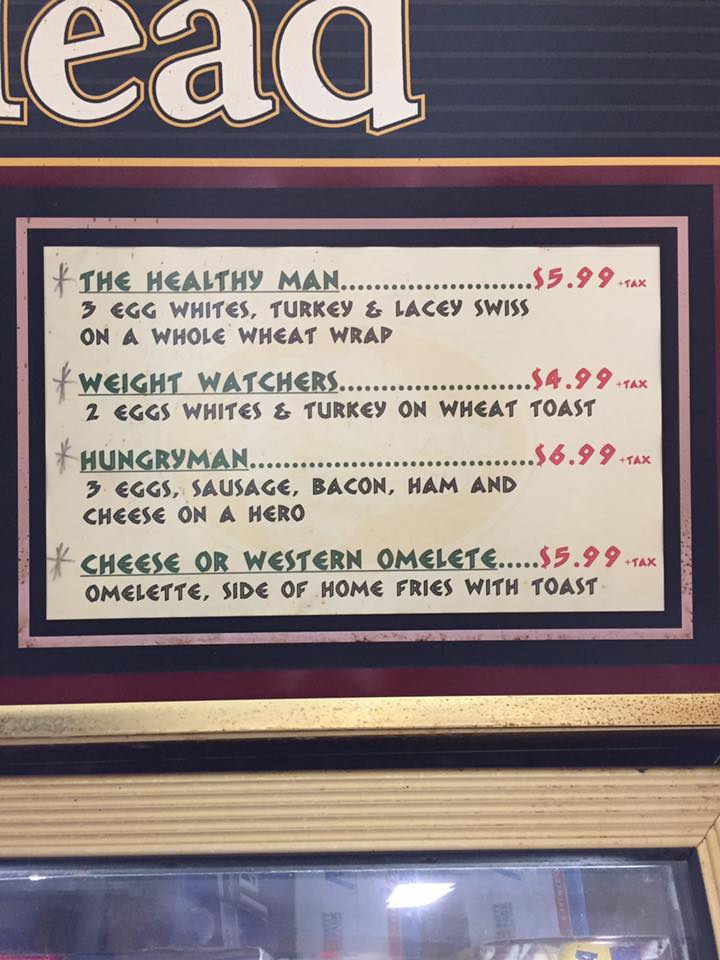 ead
* THE HEALTHY MAN......................$5.99 +TAX
3 EGG WHITES, TURKEY & LACEY SWISS
ON A WHOLE WHEAT WRAP
* WEIGHT WATCHERS......................$4.99 +TAX
2 EGGS WHITES & TURKEY ON WHEAT TOAST
* HUNGRYMAN.................................$6.99 +TAX
3 EGGS, SAUSAGE, BACON, HAM AND
CHEESE ON A HERO
* CHEESE OR WESTERN OMELETE.....$5.99 +TAX
OMELETTE, SIDE OF HOME FRIES WITH TOAST